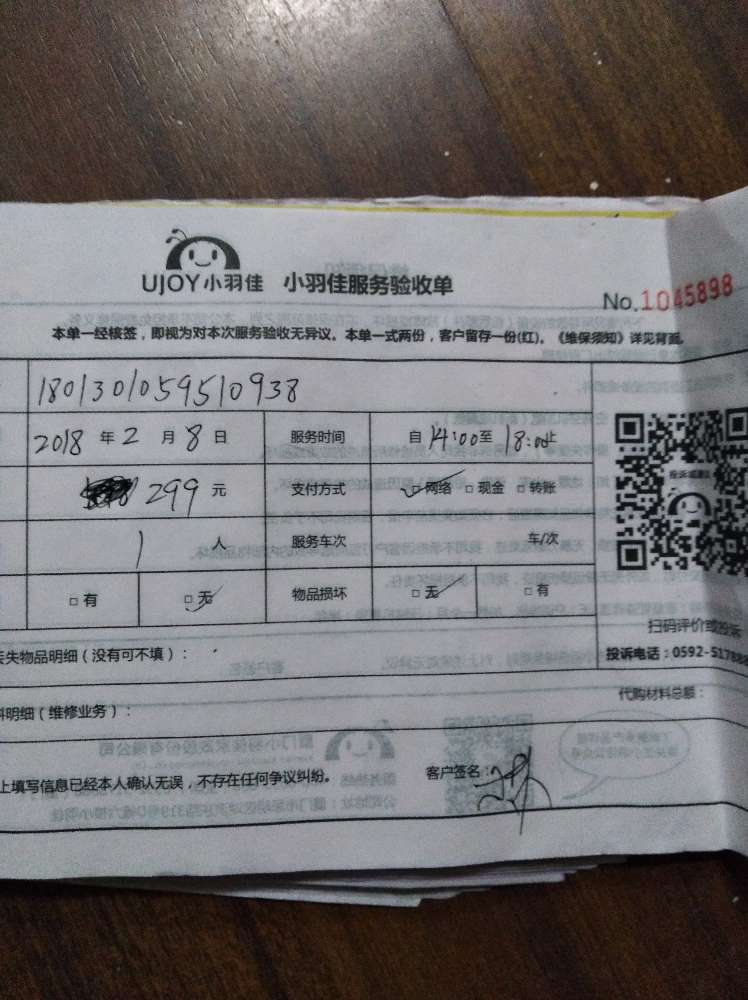 UJOY小羽佳 小羽佳服务验收单
No.1045898
本单一经核签，即视为对本次服务验收无异议。本单一式两份，客户留存一份(红)。《维保须知》详见背面。
1801301059510938
2018 年 2 月 8 日 服务时间 自 14:00 至 18:00 止
299 元 支付方式 □网络 □现金 □转账
1 人 服务车次 车/次
□有 □无 物品损坏 □无 □有
扫码评价或投诉
丢失物品明细（没有可不填）：
投诉电话：0592-5178
代购材料总额：
料明细（维修业务）：
上填写信息已经本人确认无误，不存在任何争议纠纷。 客户签名：